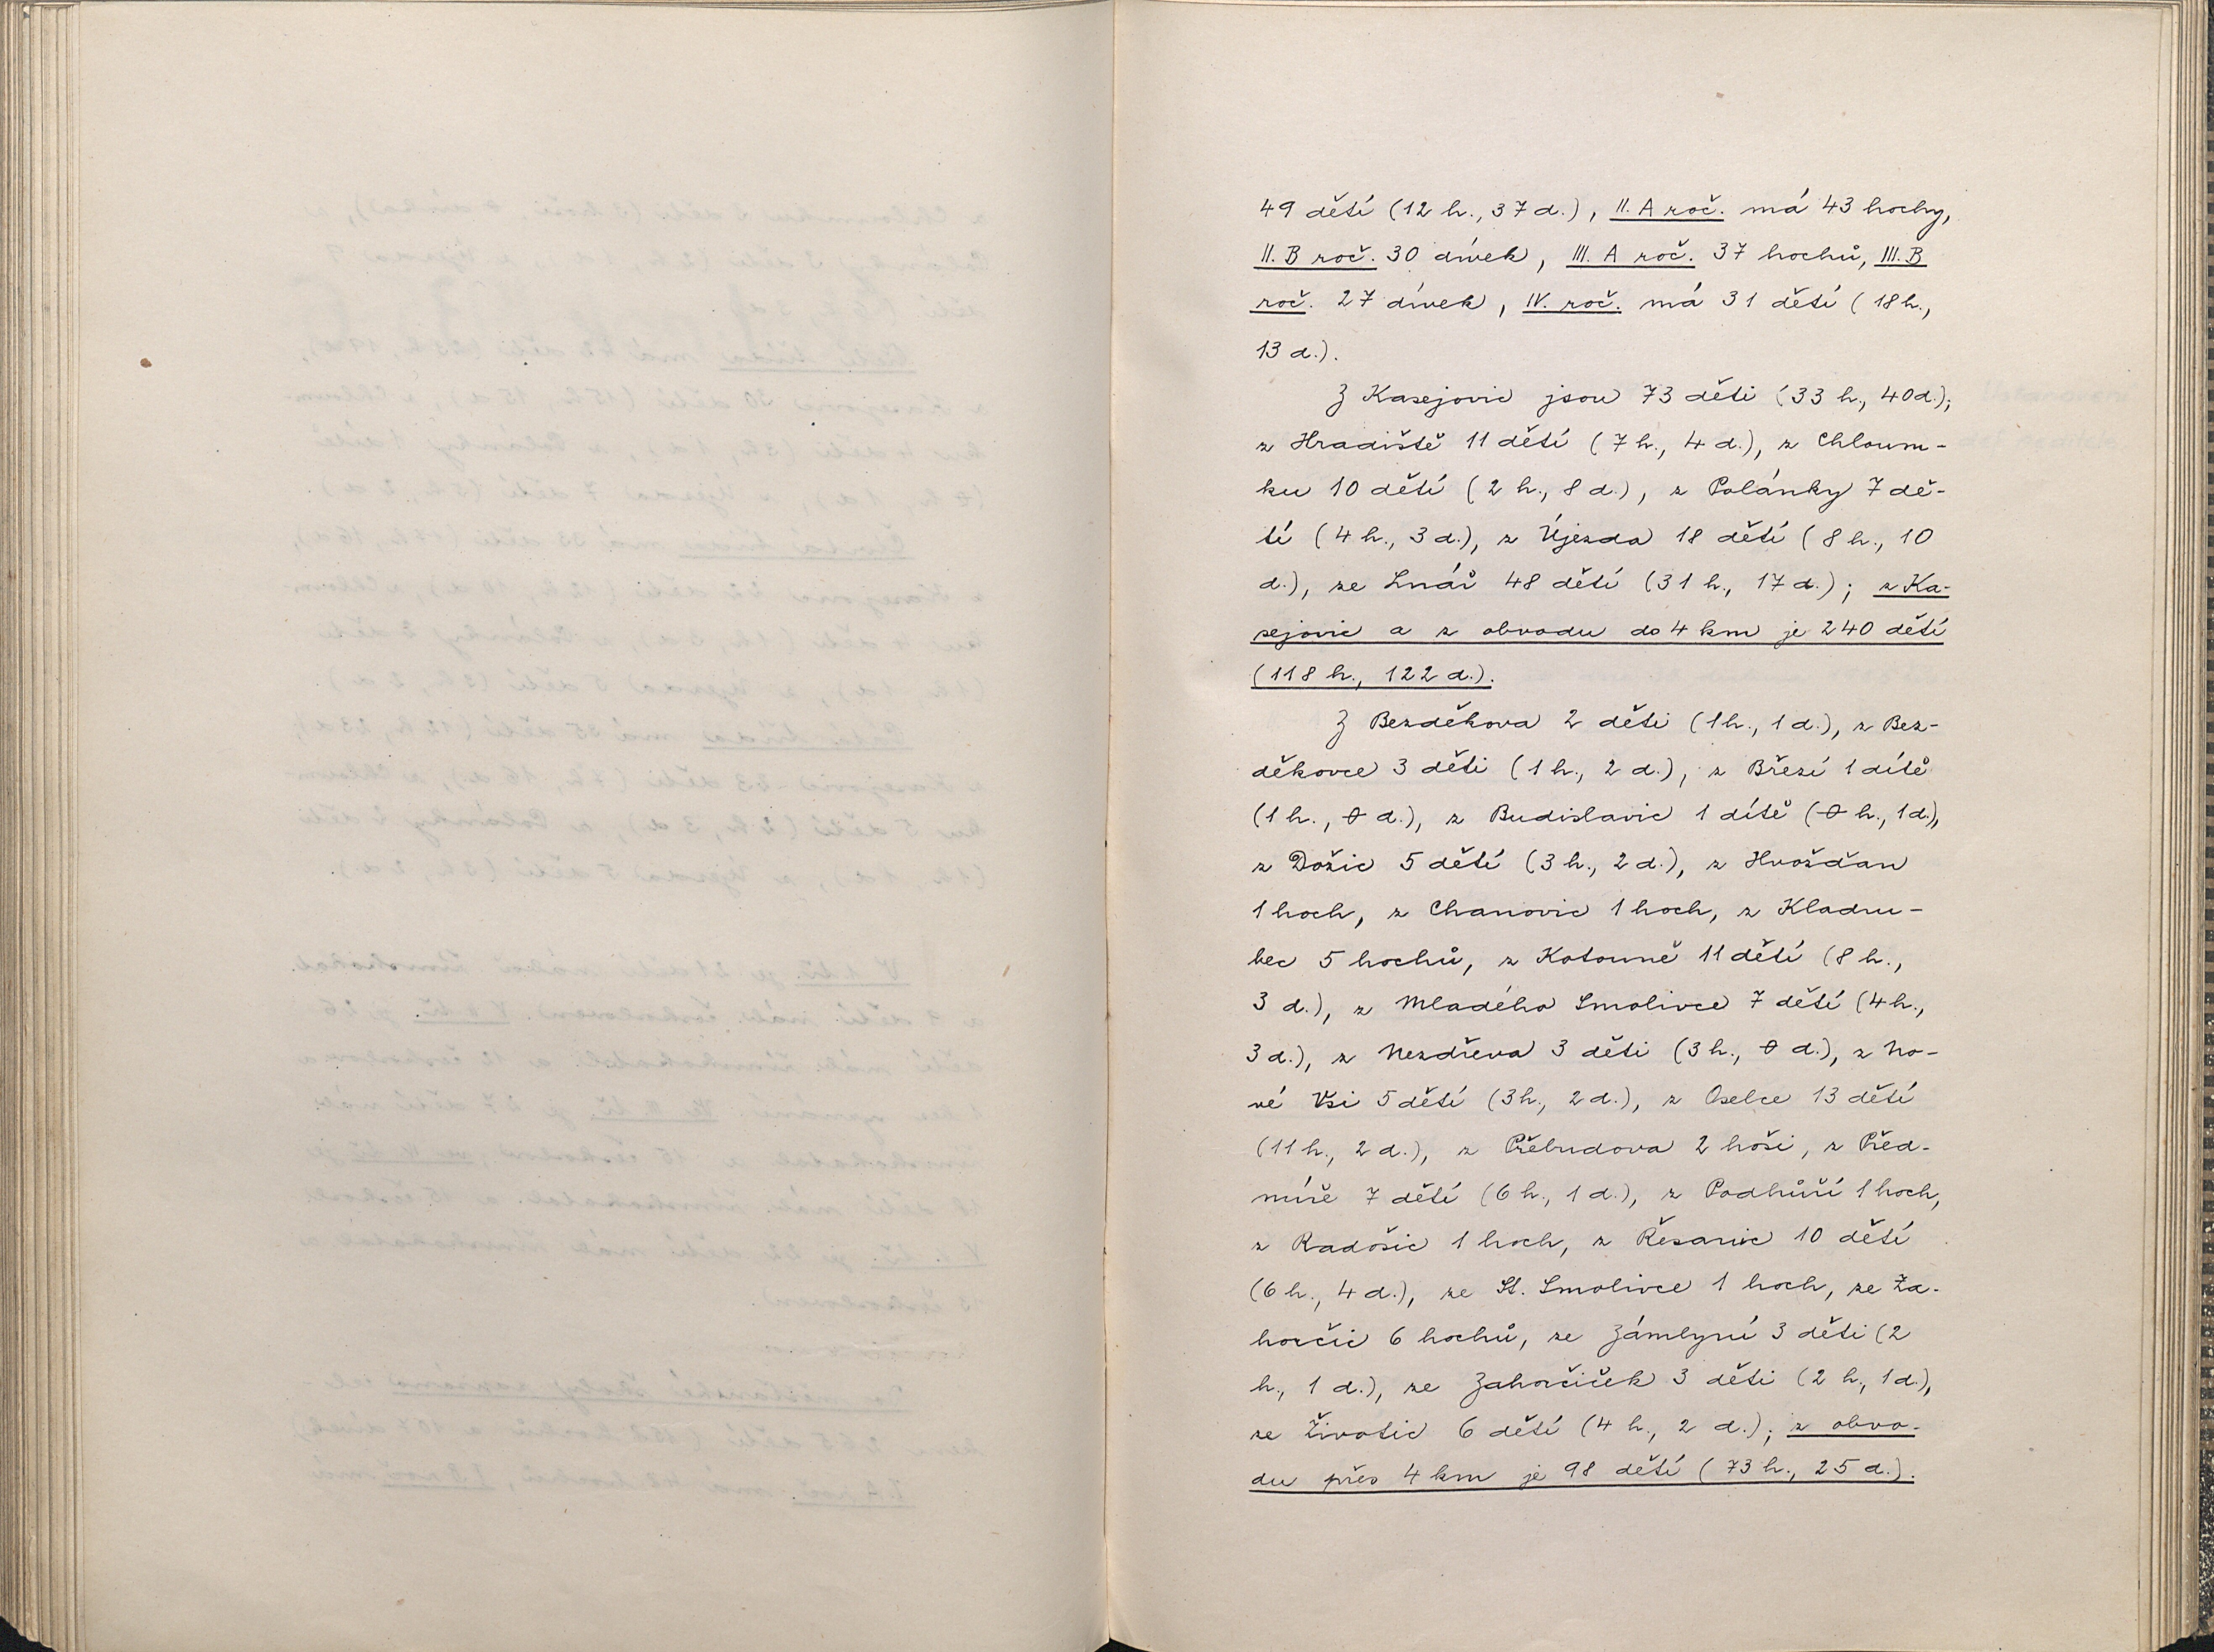 49 dětí (12 h., 37 d.), II. A roč. má 43 hochy,
II. B roč. 30 dívek, III. A roč. 37 hochů, III. B
roč. 27 dívek, IV. roč. má 31 dětí (18 h.,
13 d.).
Z Kasejovic jsou 73 děti (33 h., 40 d.);
z Hradiště 11 dětí (7 h., 4 d.), z Chloum-
ku 10 dětí (2 h., 8 d.), z Polánky 7 dě-
tí (4 h., 3 d.), z Újezda 18 dětí (8 h., 10
d.), ze Lnář 48 dětí (31 h., 17 d.); z Ka-
sejovic a z obvodu do 4 km je 240 dětí
(118 h., 122 d.).
Z Bezděkova 2 děti (1 h., 1 d.), z Bez-
děkovce 3 děti (1 h., 2 d.), z Březí 1 dítě
(1 h., 0 d.), z Budislavic 1 dítě (0 h., 1 d.),
z Dožic 5 dětí (3 h., 2 d.), z Hvožďan
1 hoch, z Chanovic 1 hoch, z Kladru-
bec 5 hochů, z Kotouně 11 dětí (8 h.,
3 d.), z Mladého Smolivce 7 dětí (4 h.,
3 d.), z Nezdřeva 3 děti (3 h., 0 d.), z No-
vé Vsi 5 dětí (3 h., 2 d.), z Oselce 13 dětí
(11 h., 2 d.), z Přebudova 2 hoši, z Před-
míře 7 dětí (6 h., 1 d.), z Podhůří 1 hoch,
z Radošic 1 hoch, z Řesanic 10 dětí
(6 h., 4 d.), ze St. Smolivce 1 hoch, ze Za-
horčic 6 hochů, ze Zámlyní 3 děti (2
h., 1 d.), ze Zahorčiček 3 děti (2 h., 1 d.),
ze Životic 6 dětí (4 h., 2 d.); z obvo-
du přes 4 km je 98 dětí (73 h., 25 d.).